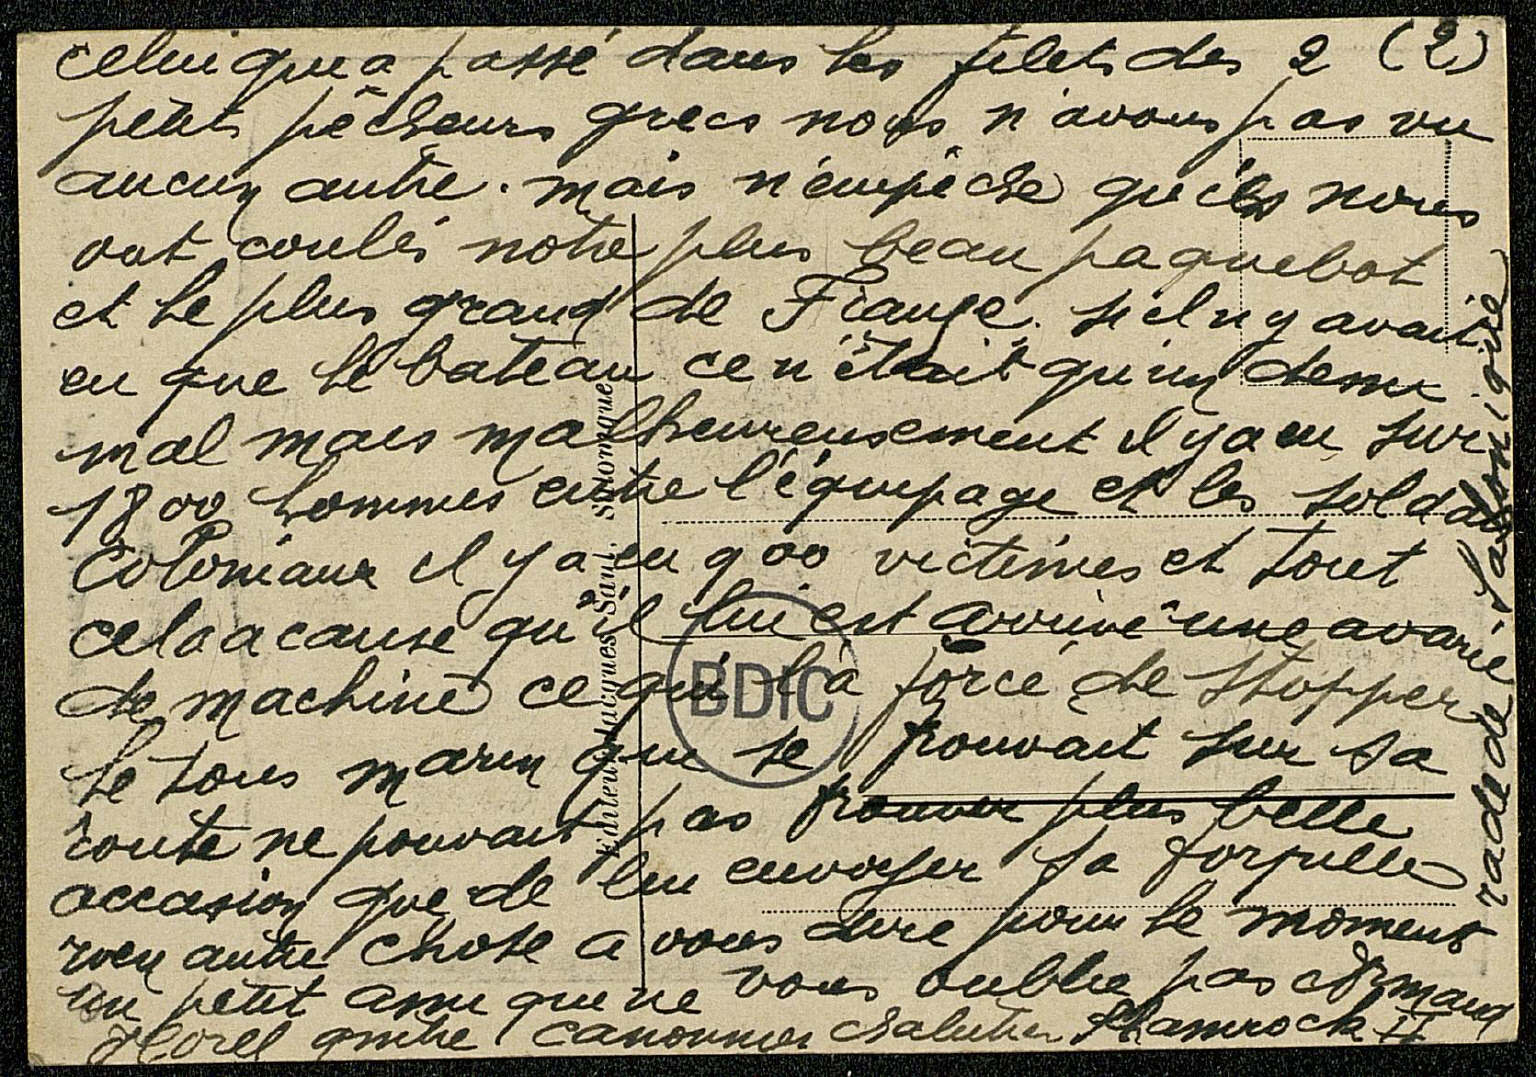 celui qui a passé dans les filets des 2 (2)
petits pêcheurs grecs nous n'avons pas vu
aucun autre. mais n'empêche qu'ils nous
ont coulés notre plus beau paquebot
et le plus grand de France. s'il n'y avait
eu que le bateau ce n'était qu'un demi
mal mais malheureusement il y a eu sur
1800 hommes entre l'équipage et les soldats
Coloniaux il y a eu 900 victimes et tout
cela a cause qu'il lui est arrivé une avarie
de machine ce qui l'à forcé de stopper
le sous marin qui se trouvait sur sa
route ne pouvait pas trouver plus belle
occasion que de lui envoyer sa torpille
rien autre chose a vous dire pour le moment
un petit ami qui ne vous oublie pas Armand
Morel maître canonnier chalutier Shamrock II
rade de Salonique
Edit Jacques Saul. Salonique
BDIC